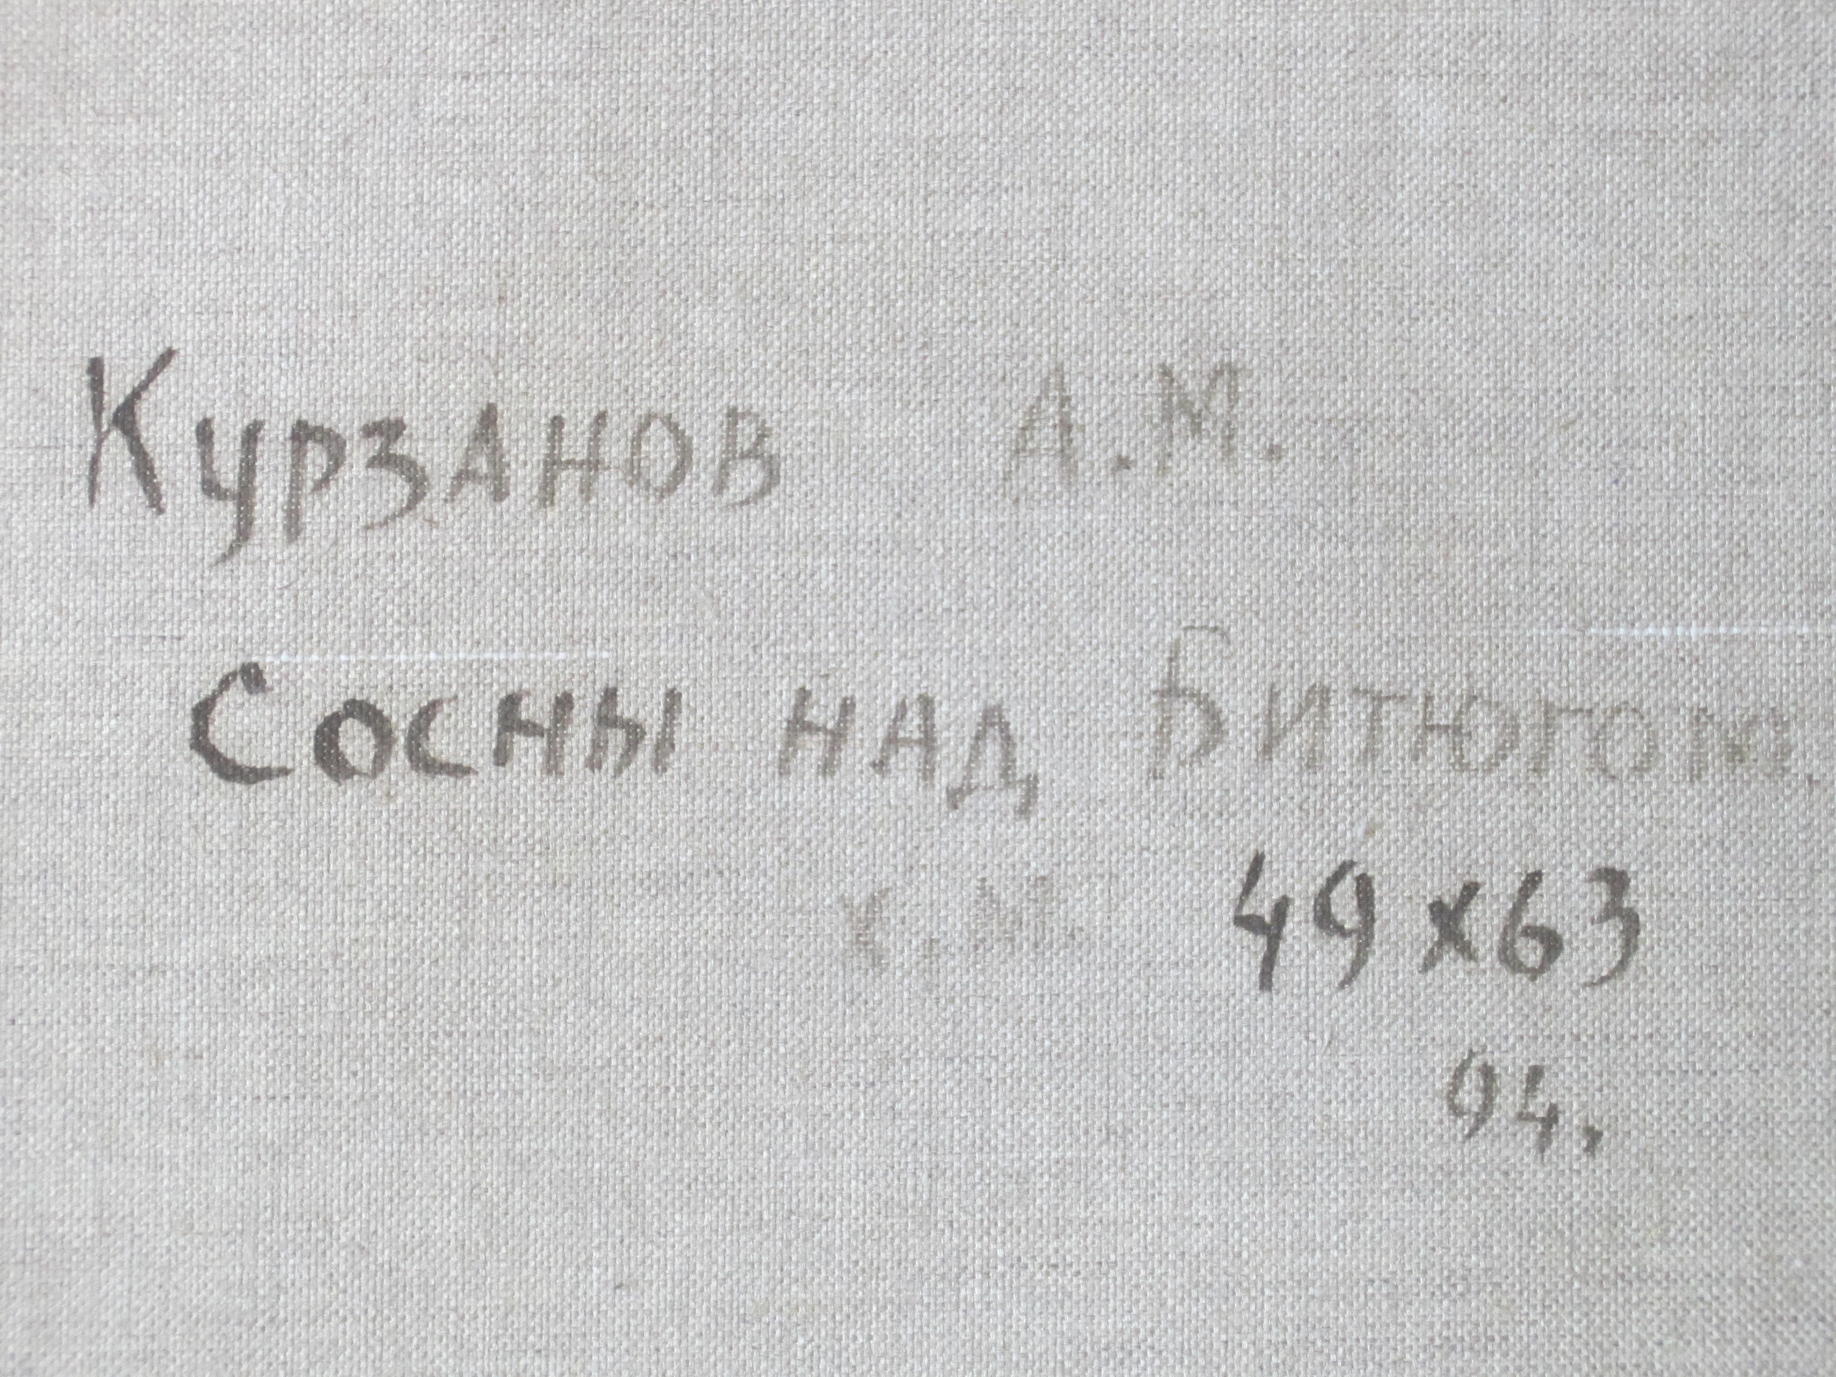 Курзанов А.М.
Сосны над Битюгом
х.м. 49х63
94.